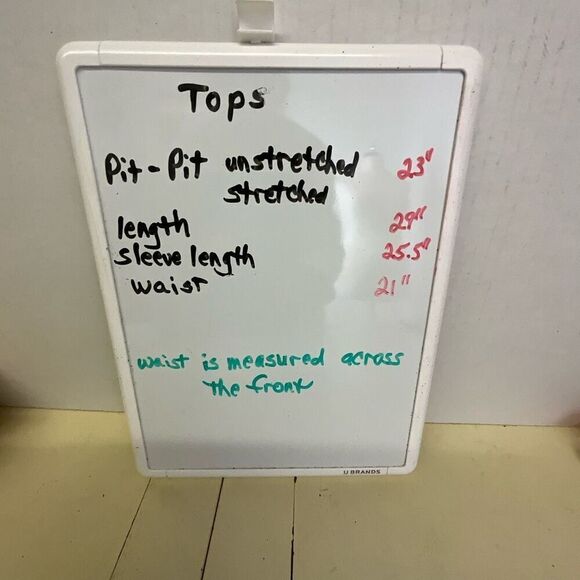 Tops
Pit-Pit unstretched 23"
stretched
length 29"
sleeve length 25.5"
waist 21"
waist is measured across
the front
U BRANDS